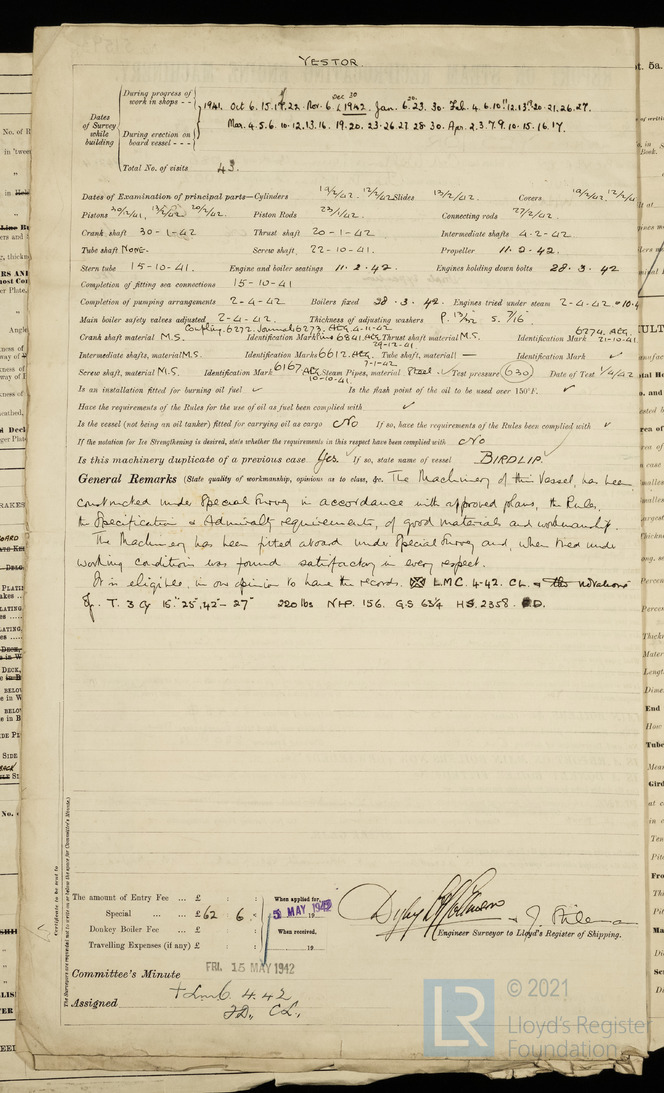 YESTOR
During progress of
work in shops - -
1941. Oct 6. 15. 17. 22. Nov. 6. Dec 30 1942. Jan. 6. 20. 23. 30. Feb. 4. 6. 10. 11. 12. 13. 20. 21. 26. 27.
Mar. 4. 5. 6. 10. 12. 13. 16. 19. 20. 23. 26. 27. 28. 30. Apr. 2. 3. 7. 9. 10. 15. 16. 17.
Dates
of Survey
while
building
During erection on
board vessel - - -
Total No. of visits 43.
Dates of Examination of principal parts—Cylinders 12/2/42. Slides 13/2/42. Covers
Pistons Piston Rods 23/1/42. Connecting rods 27/2/42.
Crank shaft 30-1-42 Thrust shaft 20-1-42 Intermediate shafts 4-2-42
Tube shaft NONE. Screw shaft, 22-10-41. Propeller 11-2-42.
Stern tube 15-10-41. Engine and boiler seatings 11.2.42. Engines holding down bolts 28.3.42
Completion of fitting sea connections 15-10-41
Completion of pumping arrangements 2-4-42 Boilers fixed 28.3.42. Engines tried under steam 2-4-42.
Main boiler safety valves adjusted 2-4-42. Thickness of adjusting washers P. 13/32 S. 7/16
Coupling. 6272. Journals 6273. ACG. 4-11-42
Crank shaft material M.S. Identification Mark 6841. ACG 29-12-41. Thrust shaft material M.S. Identification Mark 6274. ACG. 21-10-41.
Intermediate shafts, material M.S. Identification Marks 6612. ACG. 7-1-42 Tube shaft, material — Identification Mark ✓
Screw shaft, material M.S. Identification Mark 6167 ACG 10-10-41. Steam Pipes, material Steel. ✓ Test pressure 630 Date of Test 1/4/42
Is an installation fitted for burning oil fuel ✓ Is the flash point of the oil to be used over 150°F. ✓
Have the requirements of the Rules for the use of oil as fuel been complied with ✓
Is the vessel (not being an oil tanker) fitted for carrying oil as cargo No If so, have the requirements of the Rules been complied with ✓
If the notation for Ice Strengthening is desired, state whether the requirements in this respect have been complied with No
Is this machinery duplicate of a previous case Yes. If so, state name of vessel BIRDLIP.
General Remarks (State quality of workmanship, opinions as to class, &c. The Machinery of this Vessel, has been
constructed under Special Survey in accordance with approved plans, the Rules,
the Specification & Admiralty requirements, of good materials and workmanship.
The Machinery has been fitted aboard under Special Survey and, when tried under
working conditions was found satisfactory in every respect.
It is eligible, in our opinion to have the records. LMC. 4-42. CL. & the notations
of. T. 3 Cy 15." 25", 42" - 27" 220 lbs NHP. 156. G.S 63¼ HS. 2358. FD.
The amount of Entry Fee ... £ : :
Special ... ... £ 62 : 6 :
Donkey Boiler Fee ... £ : :
Travelling Expenses (if any) £ : :
When applied for,
5 MAY 1942
When received,
19
Engineer Surveyor to Lloyd's Register of Shipping.
Committee's Minute FRI. 15 MAY 1942
Assigned + Lmc 4.42
FD., CL.
Certificate to be sent to
(The Surveyors are requested not to write on or below the space for Committee's Minute.)
LR
© 2021
Lloyd's Register
Foundation